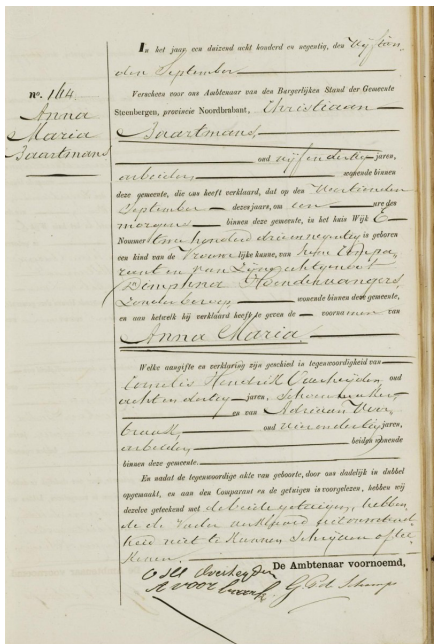 No. 164
Anna
Maria
Baartmans
In het jaar een duizend acht honderd en negentig, den vijftien
den September
Verscheen voor ons Ambtenaar van den Burgerlijken Stand der Gemeente
Steenbergen, provincie Noordbrabant, Christiaan
Baartmans,
oud vijfendertig jaren,
arbeider, wonende binnen
deze gemeente, die ons heeft verklaard, dat op den veertienden
September dezes jaars, om een ure des
morgens binnen deze gemeente, in het huis Wijk E
Nommer twee honderd drieennegentig is geboren
een kind van de vrouwelijke kunne, van hem Compa
rant en van zijne echtgenoot
Dimphna Hendrikvangers,
zonder beroep wonende binnen deze gemeente,
en aan hetwelk hij verklaard heeft te geven de voornamen van
Anna Maria.
Welke aangifte en verklaring zijn geschied in tegenwoordigheid van
Cornelis Hendrik Overheijden, oud
achtendertig jaren,
en van Adriaan Voor
braak, oud vierendertig jaren,
arbeider, beiden wonende
binnen deze gemeente.
En nadat de tegenwoordige akte van geboorte, door ons dadelijk in dubbel
opgemaakt, en aan den Comparant en de getuigen is voorgelezen, hebben wij
dezelve geteekend met de beide getuigen, hebben
de de vader verklaard uit onwetend
heid niet te kunnen schrijven of tee
kenen.
De Ambtenaar voornoemd,
C H Overheyden
A voorbraak.